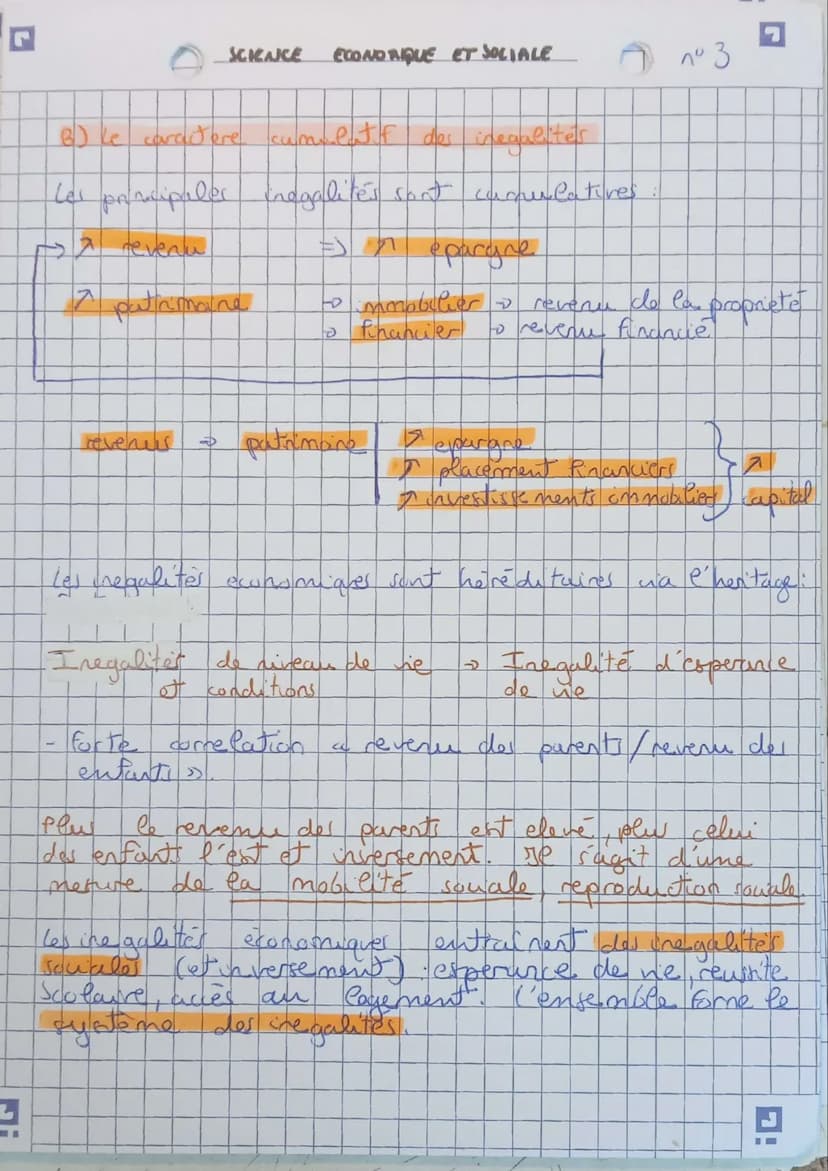 SCIENCE ECONOMIQUE ET SOCIALE n° 3
B) Le caractere cumulatif des inegalités
Les principales inegalités sont cumulatives :
↗ revenu => ↗ epargne
↗ patrimoine → immobilier → revenu de la proprieté
→ financier → revenu financié
revenus → patrimoine ↗ epargne
↗ placement financiers ↗
↗ investissements immobiliers capital
Les inegalités economiques sont héréditaires via l'heritage :
Inegalités de niveau de vie → Inegalité d'esperance
et conditions de vie
- forte correlation « revenu des parents / revenu des
enfants ».
Plus le revenu des parents est elevé, plus celui
des enfants l'est et inversement. Il s'agit d'une
mesure de la mobilité sociale, reproduction sociale.
Les inegalités économiques entraînent des inegalités
sociales (et inversement) : esperance de vie, reusite
scolaire, accès au logement. L'ensemble forme le
système des inegalités.